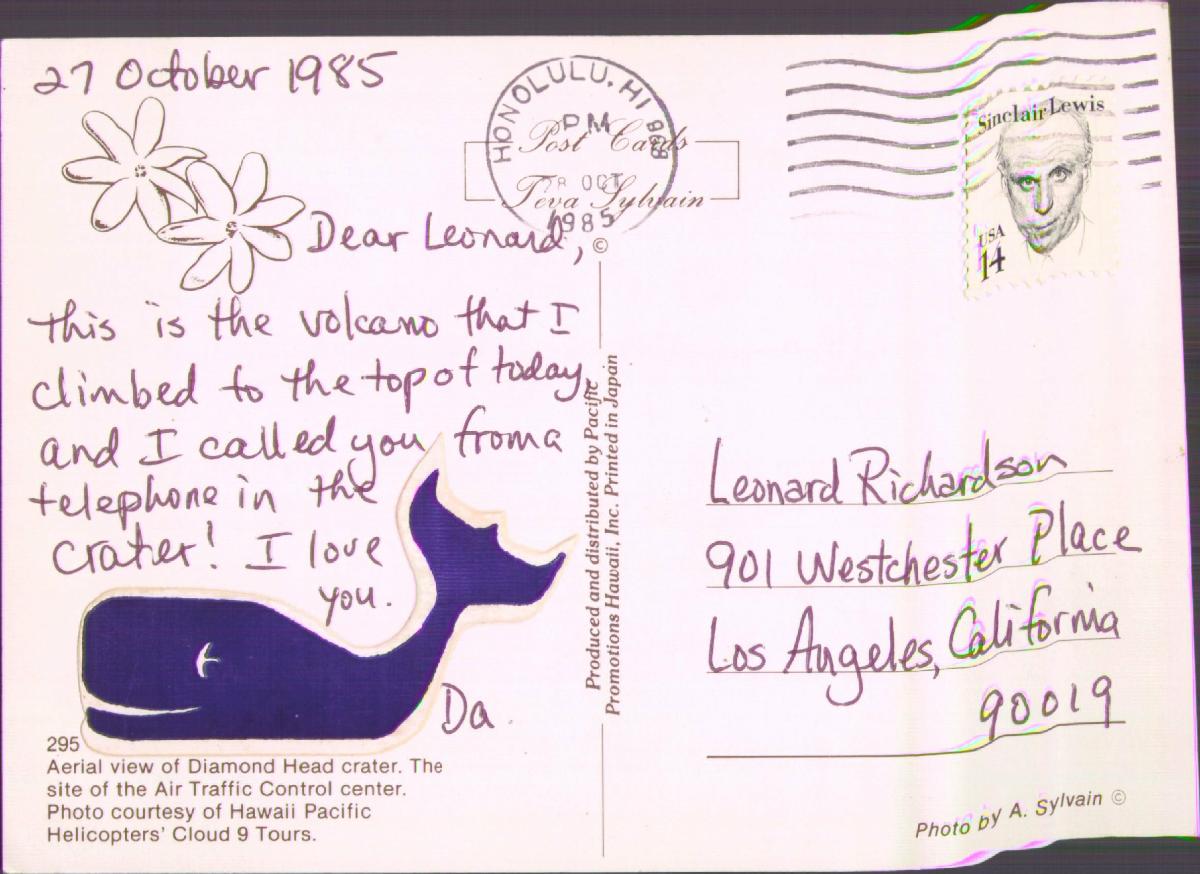 27 October 1985
Dear Leonard,
this is the volcano that I
climbed to the top of today,
and I called you from a
telephone in the
crater! I love
you.
Da
295
Aerial view of Diamond Head crater. The
site of the Air Traffic Control center.
Photo courtesy of Hawaii Pacific
Helicopters' Cloud 9 Tours.
HONOLULU, HI 968
PM
28 OCT
1985
Post Cards
Teva Sylvain
©
Produced and distributed by Pacific
Promotions Hawaii, Inc. Printed in Japan
Sinclair Lewis
USA
14
Leonard Richardson
901 Westchester Place
Los Angeles, California
90019
Photo by A. Sylvain ©